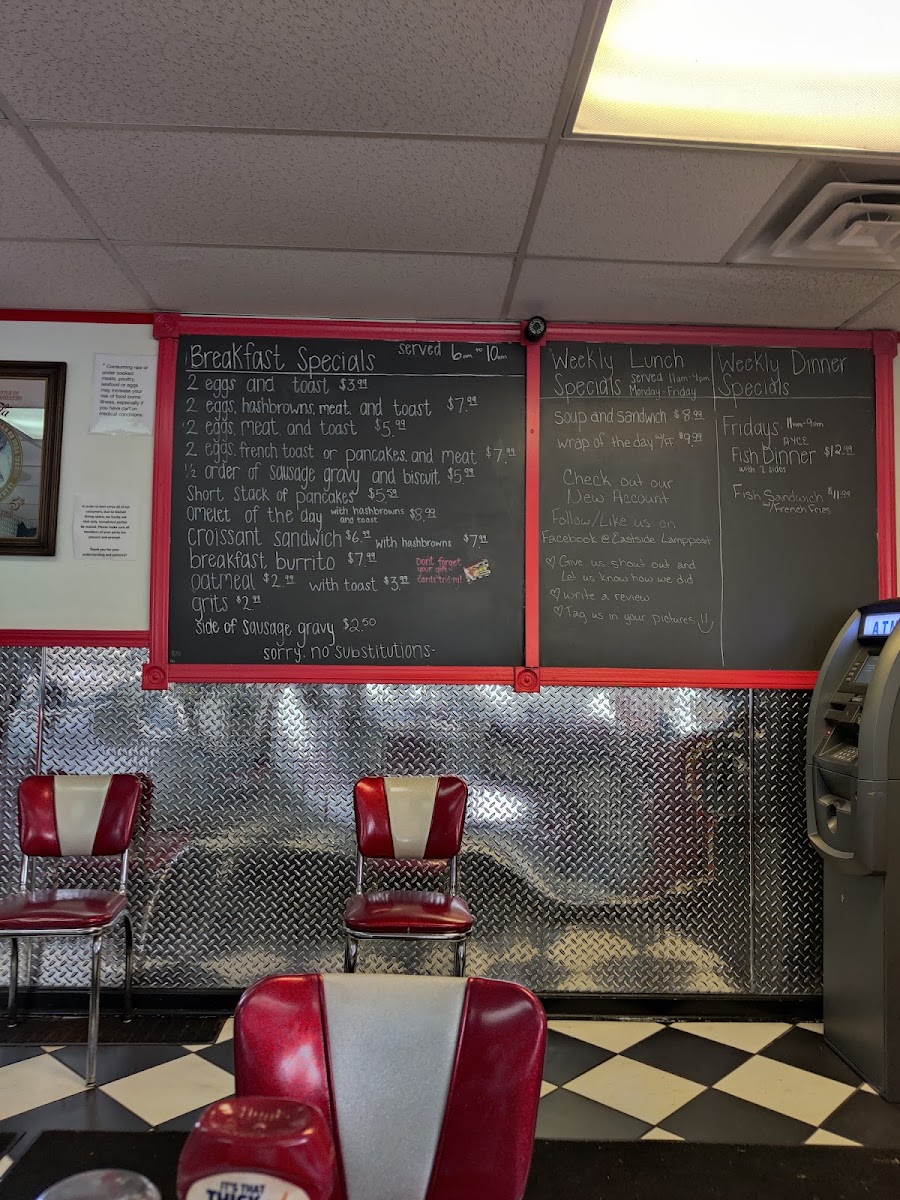 * Consuming raw or
under cooked
meats, poultry,
seafood or eggs
may increase your
risk of food borne
illness, especially if
you have certain
medical conditions.
Thank you for your
understanding and patience!
Breakfast Specials served 6am to 10am
2 eggs and toast $3.99
2 eggs, hashbrowns, meat, and toast $7.99
2 eggs, meat, and toast $5.99
2 eggs, french toast or pancakes, and meat $7.99
1/2 order of sausage gravy and biscuit $5.99
Short stack of pancakes $5.59
omelet of the day with hashbrowns and toast $8.99
croissant sandwich $6.99 with hashbrowns $7.99
breakfast burrito $7.99
oatmeal $2.99 with toast $3.99
Dont forget
your gift
cards today!
grits $2.99
side of sausage gravy $2.50
sorry, no substitutions.
Weekly Lunch
Specials served 11am-4pm
Monday-Friday
soup and sandwich $8.99
wrap of the day w/FF $9.99
Check out our
New Account
Follow/Like us on
Facebook @Eastside Lamppost
♡ Give us shout out and
Let us know how we did
♡ write a review
♡ Tag us in your pictures!!
Weekly Dinner
Specials
Fridays 11am-9pm
AYCE
Fish Dinner $12.99
with 2 sides
Fish Sandwich $11.99
w/French Fries
ATM
IT'S THAT
THICK